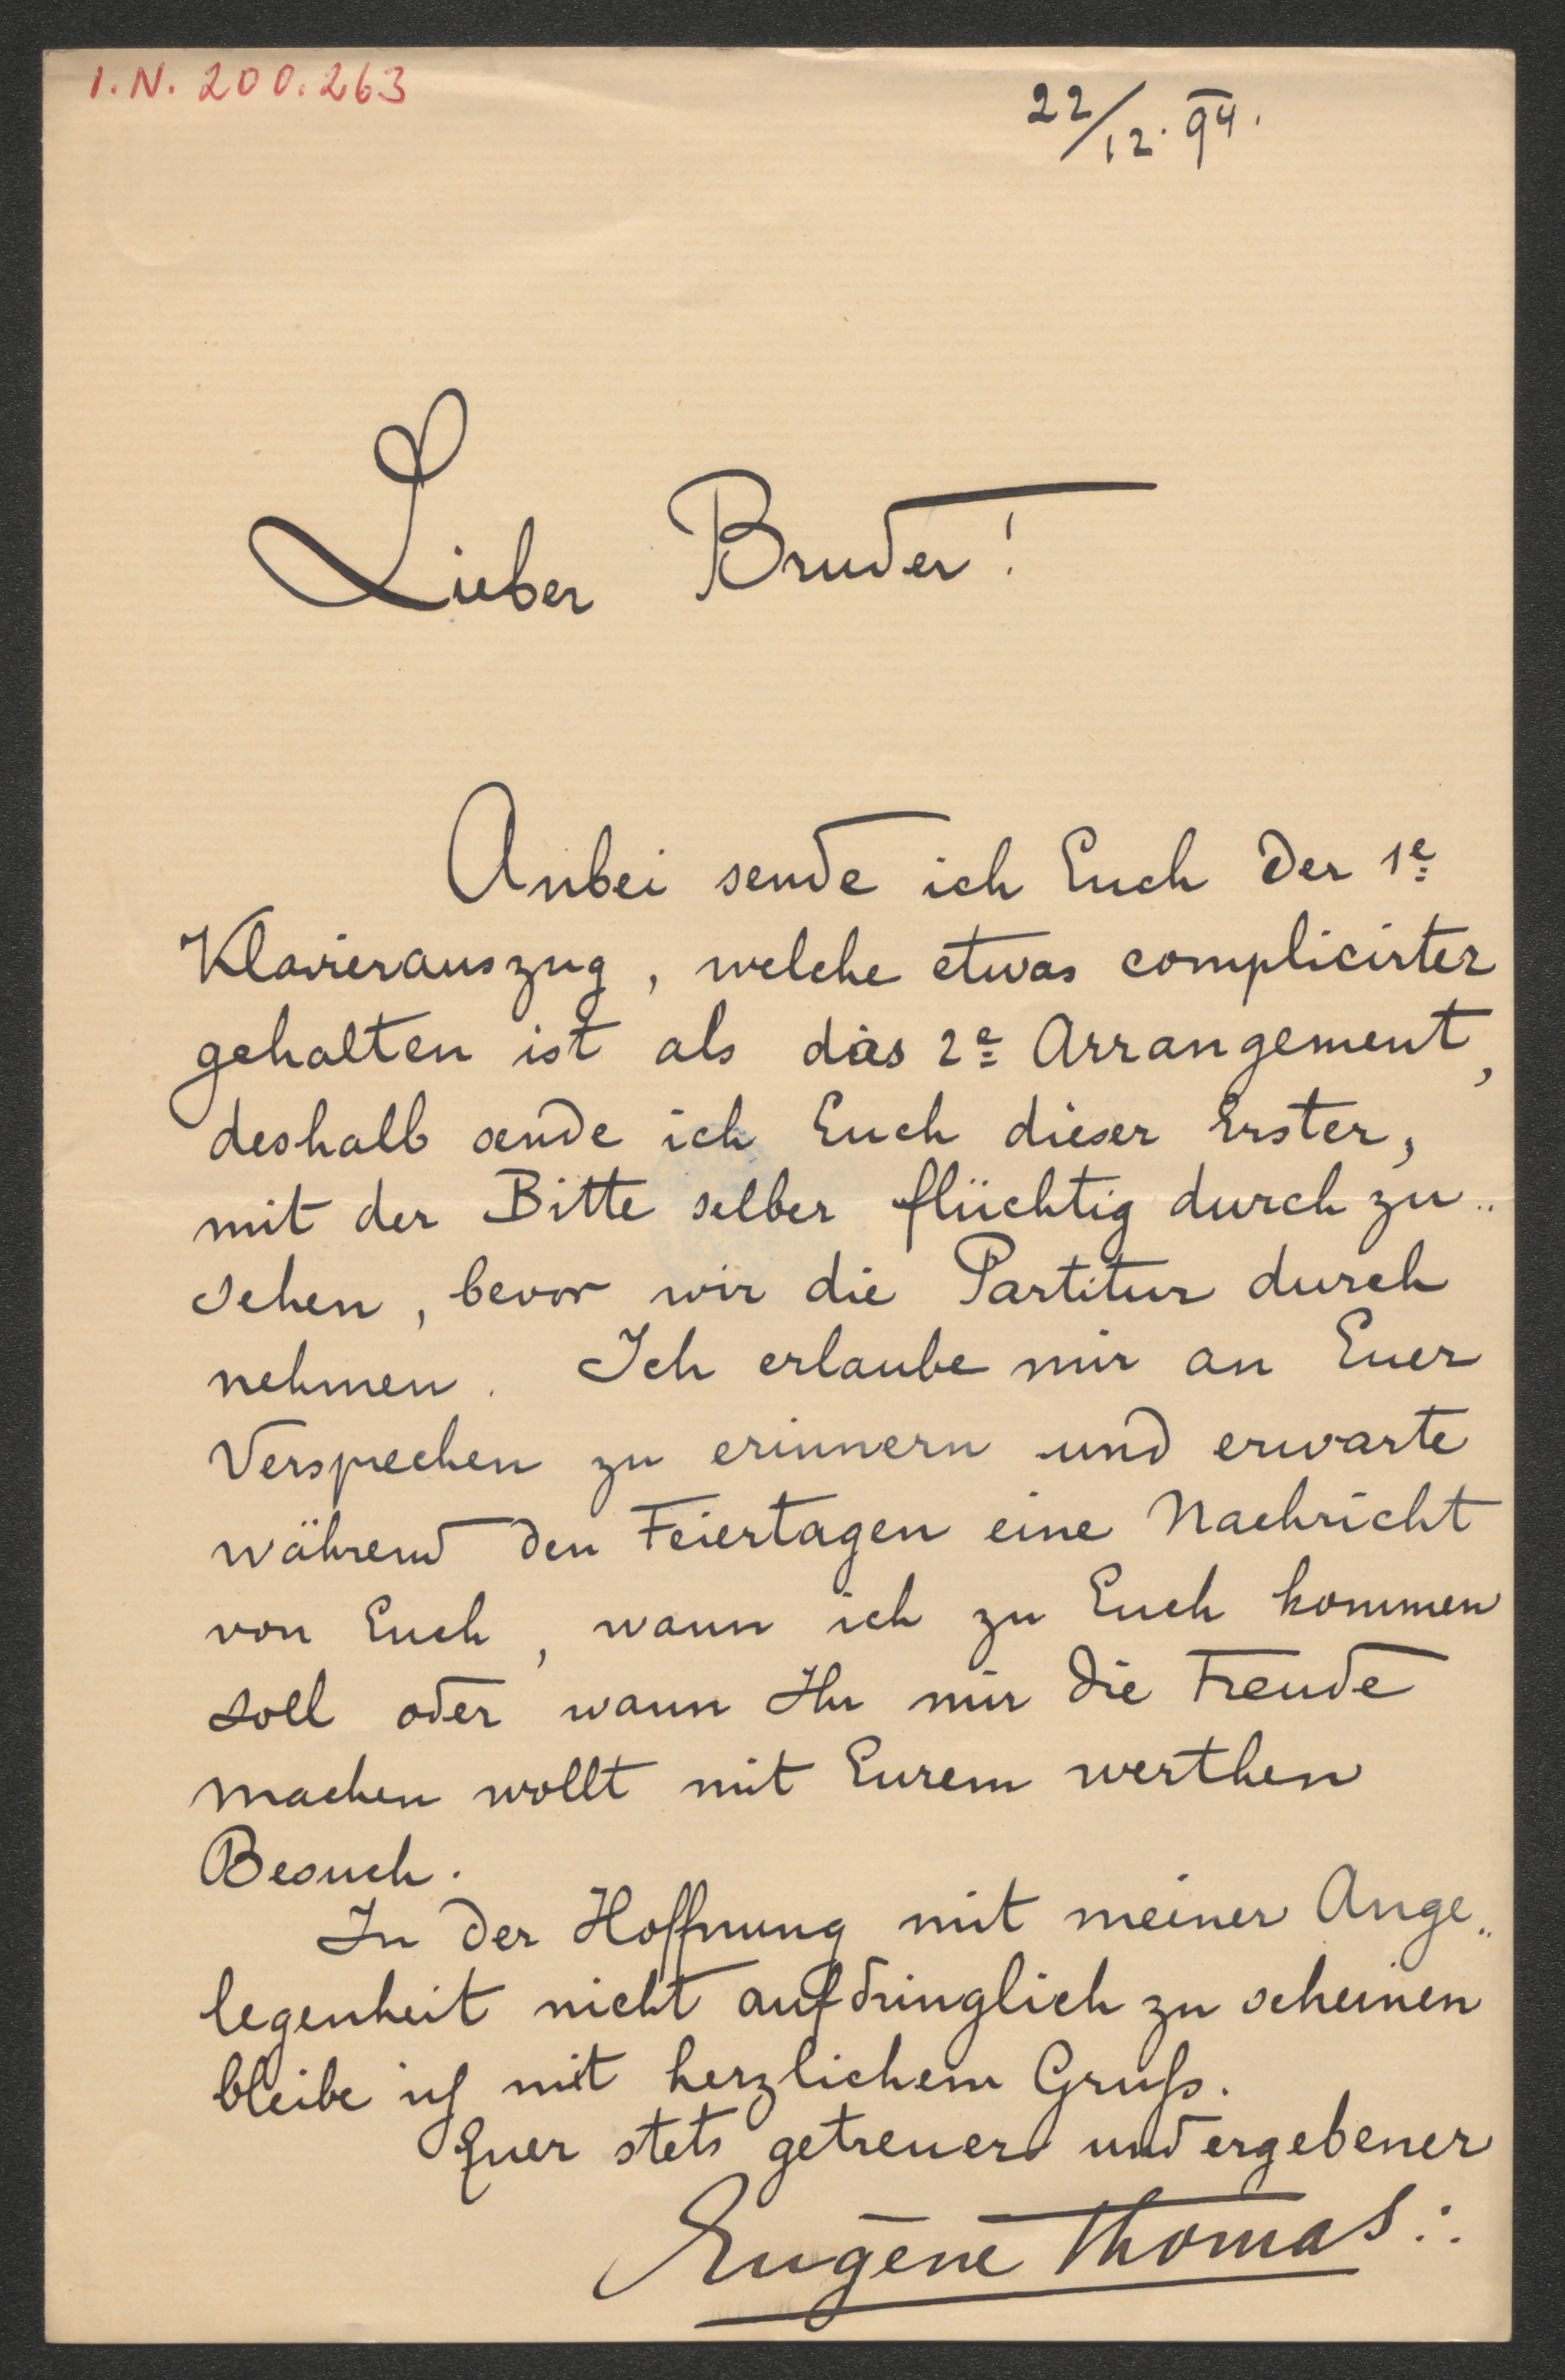 I.N. 200.263
22/12. 94.
Lieber Bruder!
Anbei sende ich Euch der 1e
Klavierauszug, welche etwas complicirter
gehalten ist als das 2e Arrangement,
deshalb sende ich Euch dieser Erster,
mit der Bitte selber flüchtig durch zu„
sehen, bevor wir die Partitur durch
nehmen. Ich erlaube mir an Euer
Versprechen zu erinnern und erwarte
während den Feiertagen eine Nachricht
von Euch, wann ich zu Euch kommen
soll oder wann Ihr mir die Freude
machen wollt mit Eurem werthen
Besuch.
In der Hoffnung mit meiner Ange„
legenheit nicht aufdringlich zu scheinen
bleibe ich mit herzlichem Gruß.
Euer stets getreuer und ergebener
Eugène Thomas∴